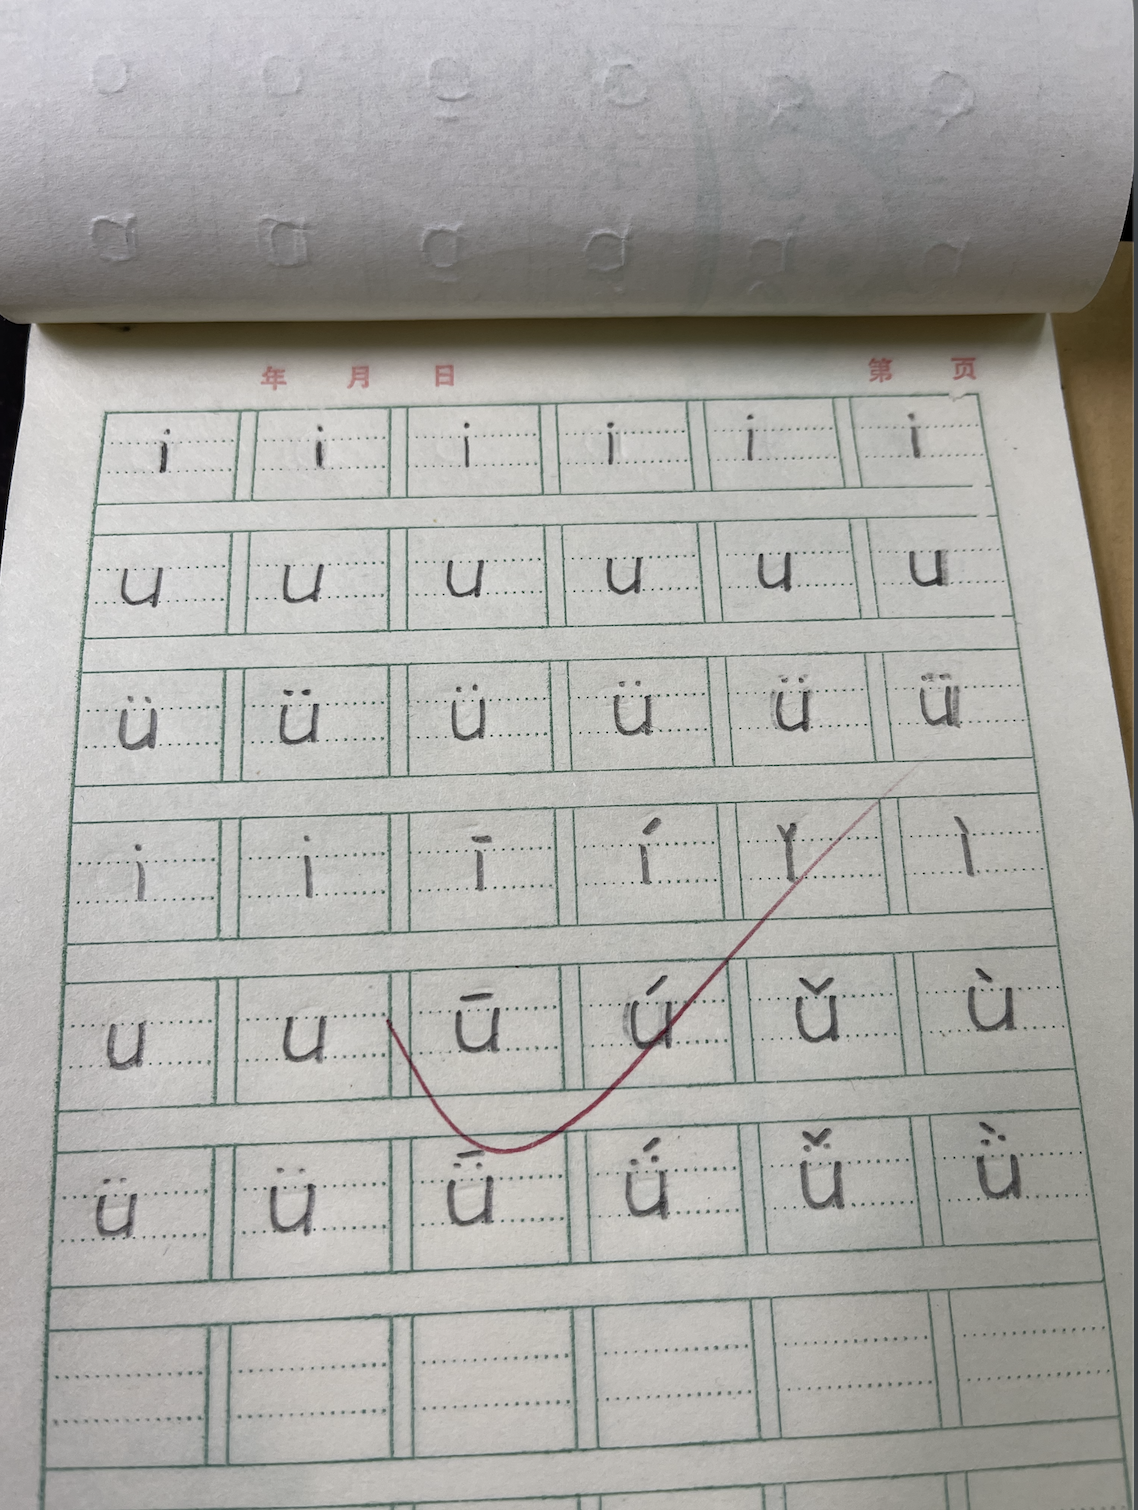 年 月 日 第 页
i i i i i i
u u u u u u
ü ü ü ü ü ü
i i ī í ǐ ì
u u ū ú ǔ ù
ü ü ǖ ǘ ǚ ǜ